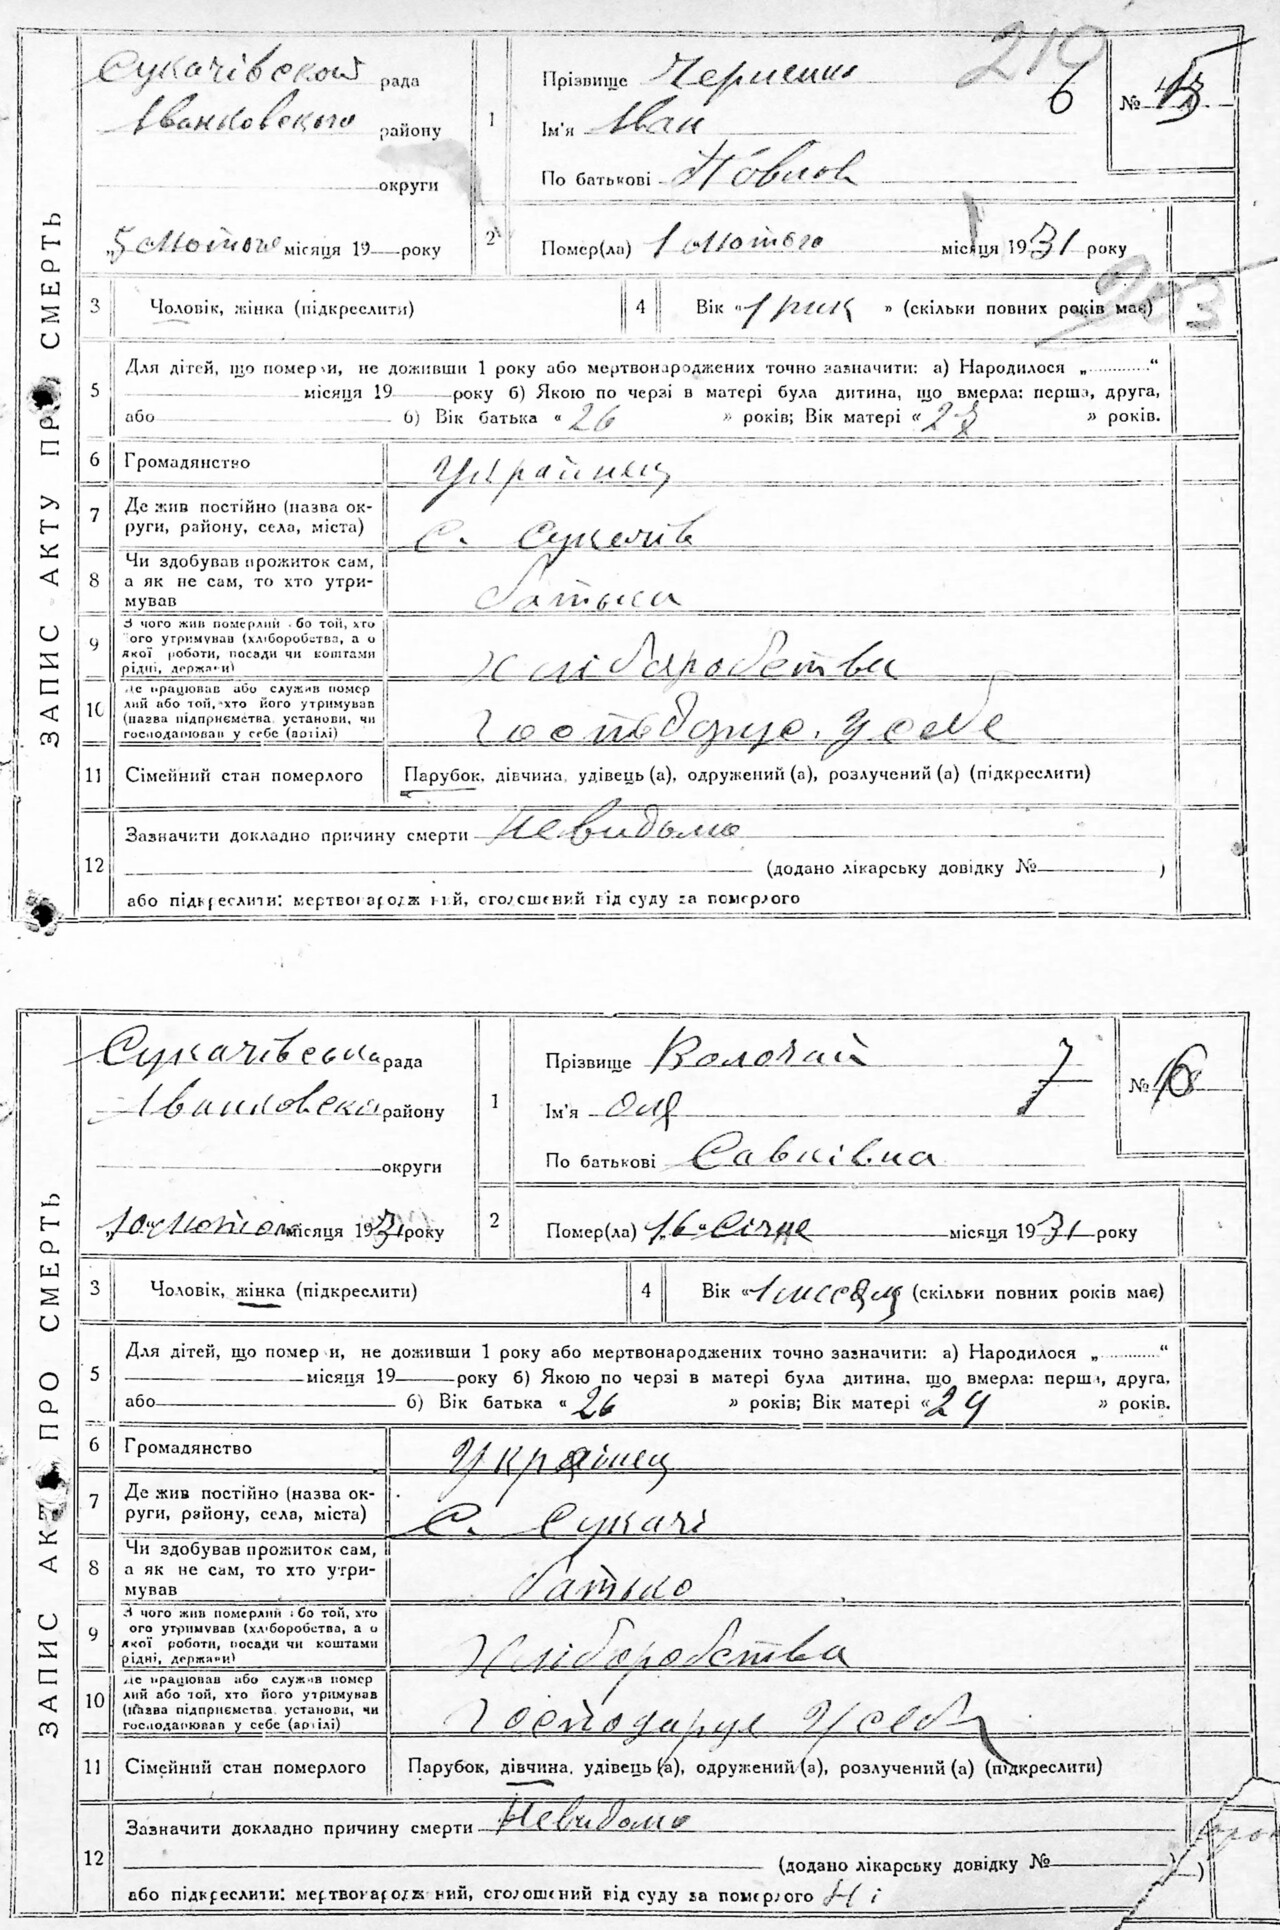 ЗАПИС АКТУ ПРО СМЕРТЬ
Сукачівской рада
Іванковського району
округи
„5 лютого місяця 19 року
210
1 Прізвище Черненко
6
№
Ім'я Іван
По батькові Павлов
2 Помер(ла) 1 лютого місяця 1931 року
3 Чоловік, жінка (підкреслити)
4 Вік «1 рик» (скільки повних років має)
5 Для дітей, що померли, не доживши 1 року або мертвонароджених точно зазначити: а) Народилося „ “
місяця 19 року б) Якою по черзі в матері була дитина, що вмерла: перша, друга,
або б) Вік батька «26» років; Вік матері « » років.
6 Громадянство Украйнец
7 Де жив постійно (назва ок-
руги, району, села, міста) с. Сукачів
8 Чи здобував прожиток сам,
а як не сам, то хто утри-
мував батька
9 З чого жив померлий або той, хто
його утримував (хліборобства, а о
якої роботи, посади чи коштами
рідні, держави) хліборобства
10 Де працював або служив помер
лий або той, хто його утримував
(назва підприємства, установи, чи
господарював у себе (артілі) господарює у себе
11 Сімейний стан померлого Парубок, дівчина, удівець (а), одружений (а), розлучений (а) (підкреслити)
12 Зазначити докладно причину смерти Невидомо
(додано лікарську довідку № )
або підкреслити: мертвонароджений, оголошений від суду за померлого
ЗАПИС АКТУ ПРО СМЕРТЬ
Сукачівська рада
Іванковска району
округи
„10“ лютого місяця 1931 року
1 Прізвище Волочай
7
№
Ім'я Оля
По батькові Савківна
2 Помер(ла) „16“ Січня місяця 1931 року
3 Чоловік, жінка (підкреслити)
4 Вік «1 місяц (скільки повних років має)
5 Для дітей, що померли, не доживши 1 року або мертвонароджених точно зазначити: а) Народилося „ “
місяця 19 року б) Якою по черзі в матері була дитина, що вмерла: перша, друга,
або б) Вік батька «26» років; Вік матері «24» років.
6 Громадянство Украінец
7 Де жив постійно (назва ок-
руги, району, села, міста) с. Сукачі
8 Чи здобував прожиток сам,
а як не сам, то хто утри-
мував батько
9 З чого жив померлий або той, хто
його утримував (хліборобства, а о
якої роботи, посади чи коштами
рідні, держави) хліборобства
10 Де працював або служив помер
лий або той, хто його утримував
(назва підприємства, установи, чи
господарював у себе (артілі) господарує у себе
11 Сімейний стан померлого Парубок, дівчина, удівець (а), одружений (а), розлучений (а) (підкреслити)
12 Зазначити докладно причину смерти Невидомо
(додано лікарську довідку № )
або підкреслити: мертвонароджений, оголошений від суду за померлого Ні